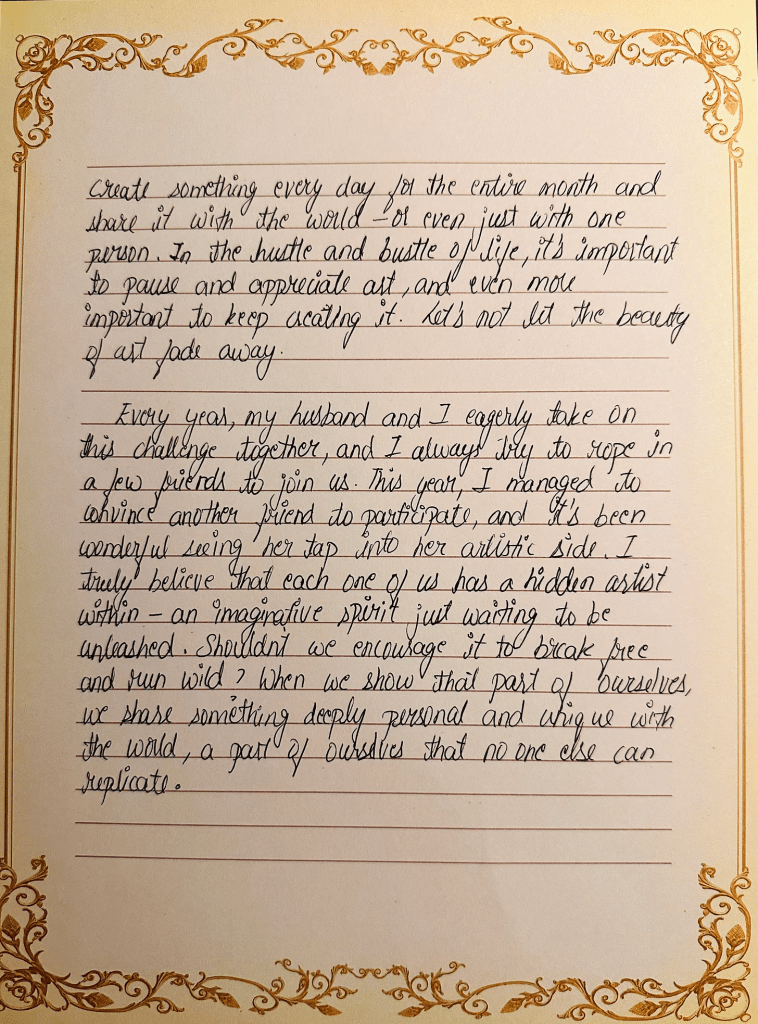 Create something every day for the entire month and
share it with the world – or even just with one
person. In the hustle and bustle of life, it's important
to pause and appreciate art, and even more
important to keep creating it. Let's not let the beauty
of art fade away.
Every year, my husband and I eagerly take on
this challenge together, and I always try to rope in
a few friends to join us. This year, I managed to
convince another friend to participate, and it's been
wonderful seeing her tap into her artistic side. I
truly believe that each one of us has a hidden artist
within – an imaginative spirit just waiting to be
unleashed. Shouldn't we encourage it to break free
and run wild? When we show that part of ourselves,
we share something deeply personal and unique with
the world, a part of ourselves that no one else can
replicate.